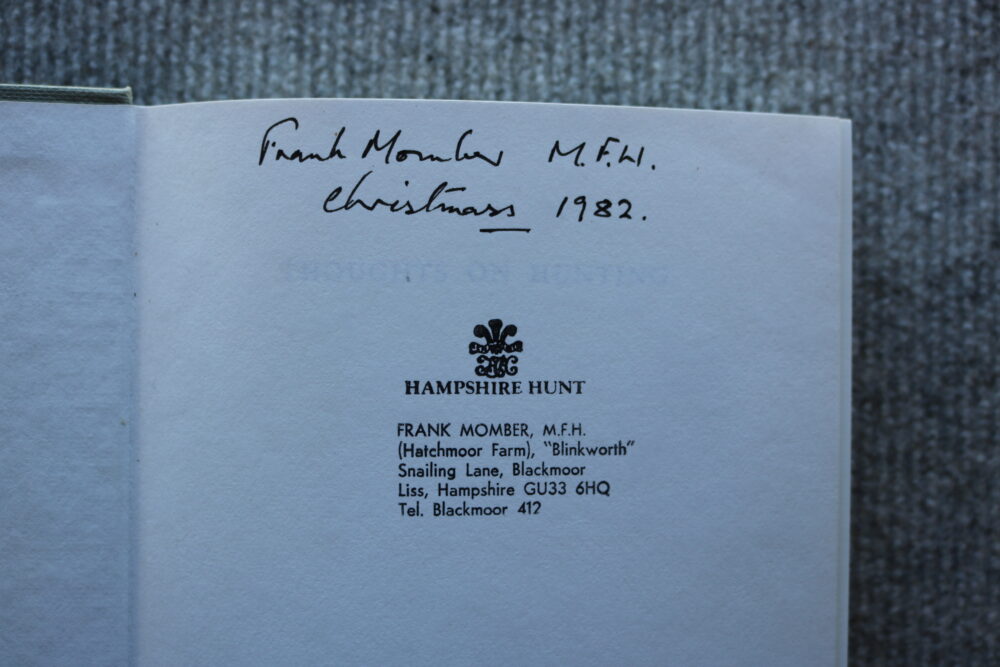 Frank Momber M.F.H.
Christmass 1982.
THOUGHTS ON HUNTING
HAMPSHIRE HUNT
FRANK MOMBER, M.F.H.
(Hatchmoor Farm), "Blinkworth"
Snailing Lane, Blackmoor
Liss, Hampshire GU33 6HQ
Tel. Blackmoor 412